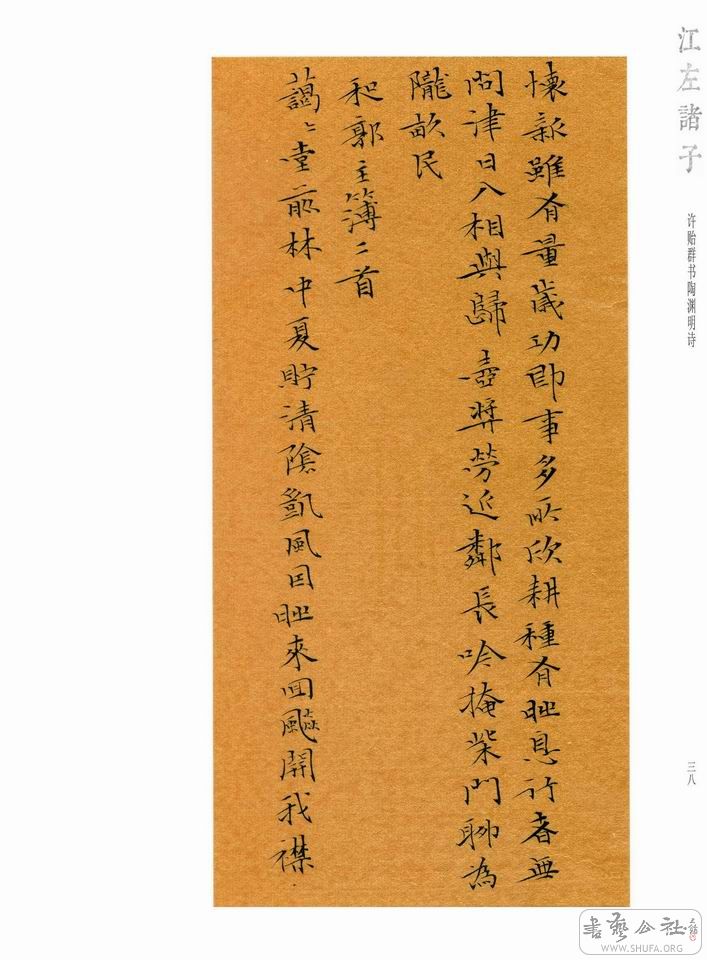 江左諸子
许贻群书陶渊明诗
懷新雖有量歲功即事多所欣耕種有時息行者無
問津日入相與歸壺漿勞近鄰長吟掩柴門聊為
隴畝民
和郭主簿二首
藹〻堂前林中夏貯清陰凱風因時來回飈開我襟
三八
書藝公社
WWW.SHUFA.ORG